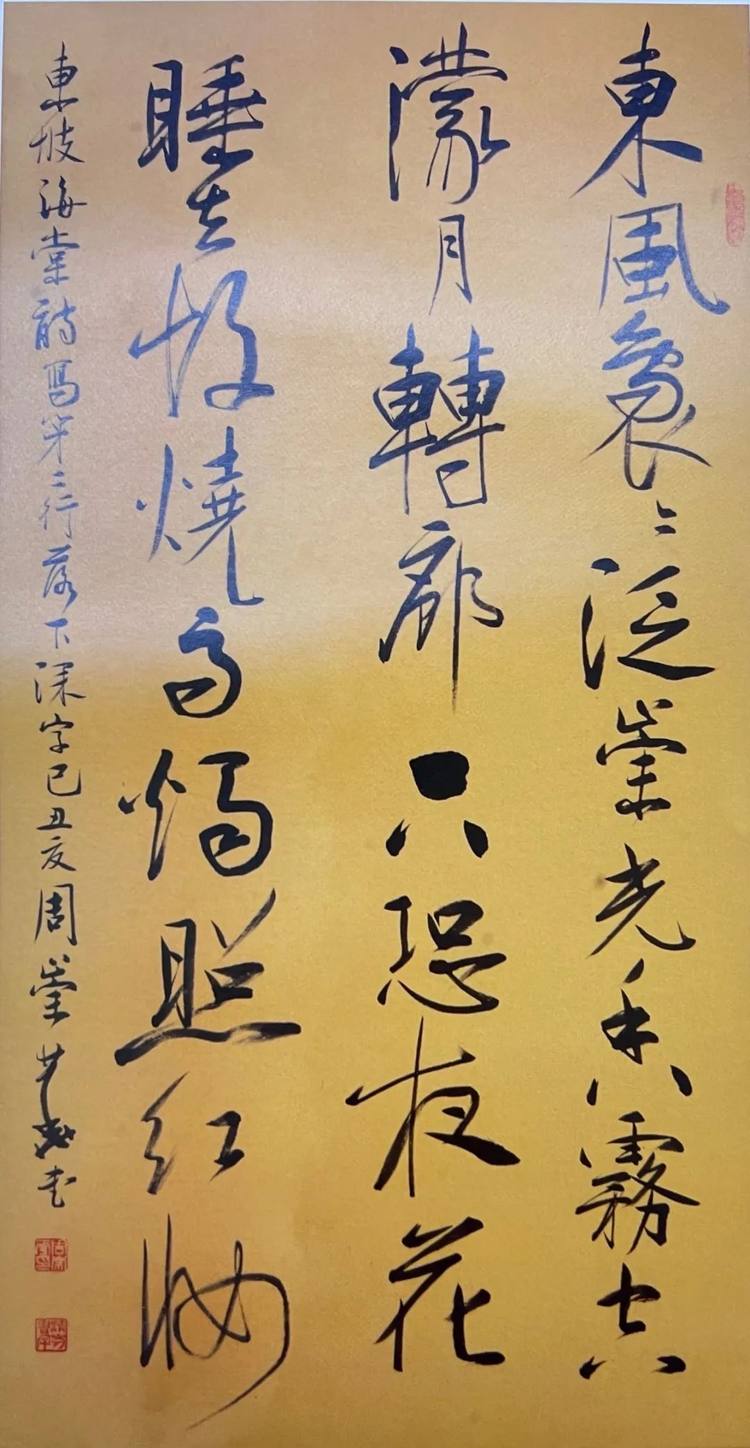 東風裊〻泛崇光香霧空
濛月轉廊只恐夜花
睡去故燒高燭照紅妝
東坡海棠詩寫第二行落下深字己丑夏周崇